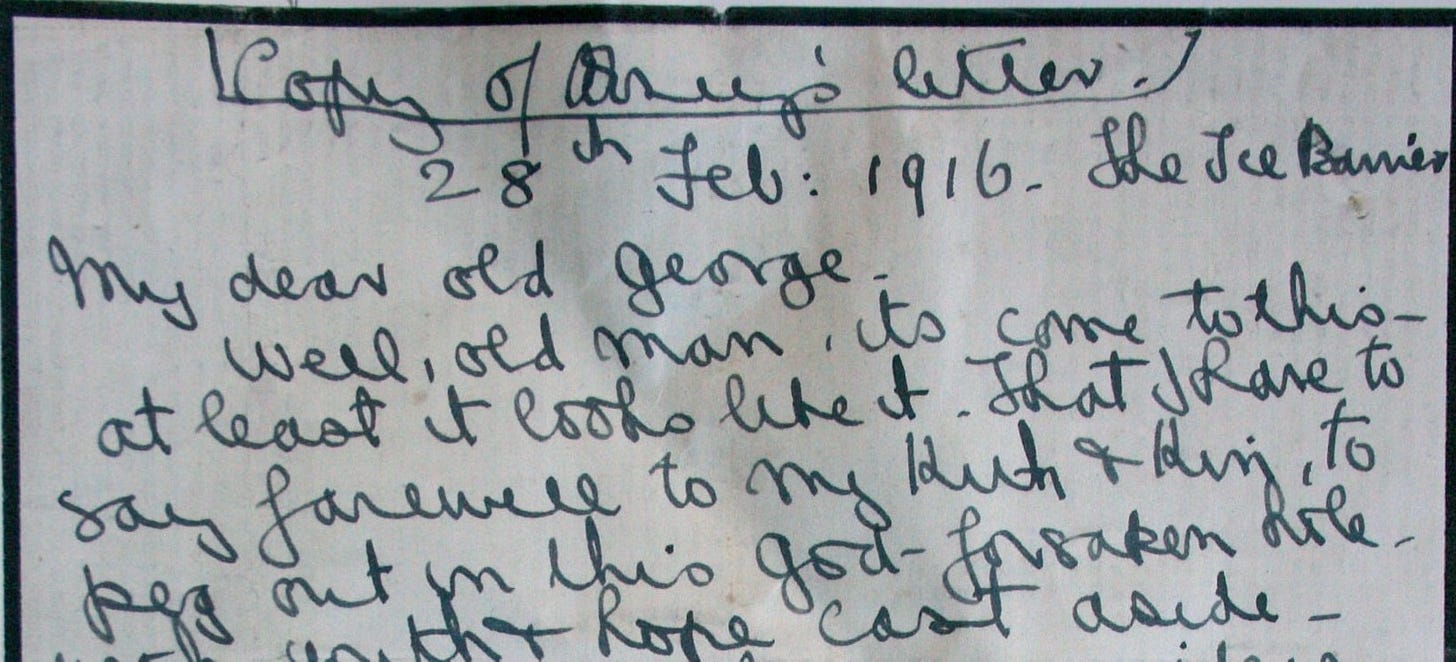 [Copy of Arney's letter.]
28th Feb: 1916. The Ice Barrier
My dear old George.
Well, old man, its come to this -
at least it looks like it. That I have to
say farewell to my Kith & Kin, to
peg out in this god-forsaken hole -
youth & hope cast aside -